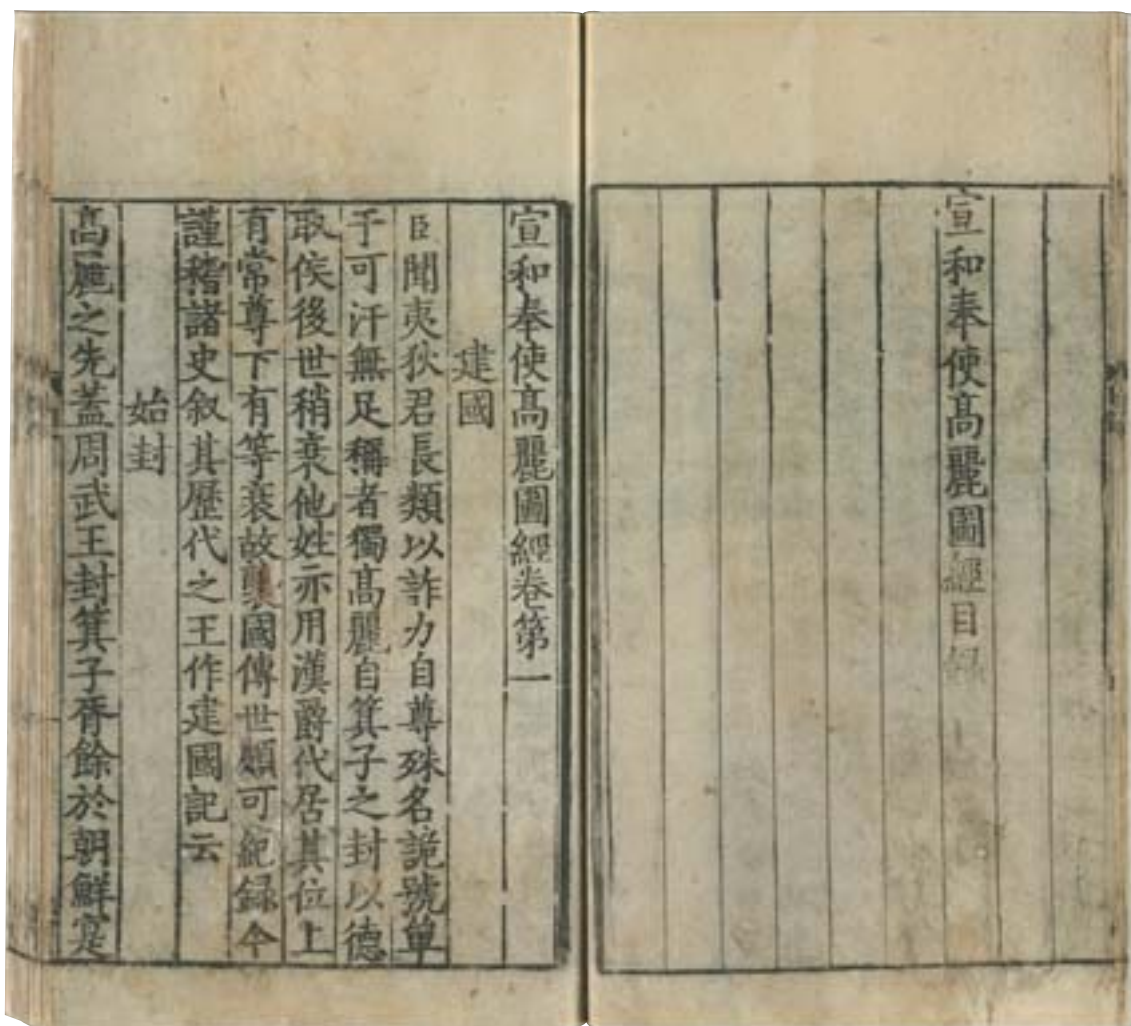 宣和奉使髙麗圖經目錄
宣和奉使髙麗圖經卷第一
建國
臣聞夷狄君長類以詐力自尊殊名詭號單
于可汗無足稱者獨髙麗自箕子之封以德
取侯後世稍衰他姓亦用漢爵代居其位上
有常尊下有等衰故襲國傳世頗可紀録今
謹稽諸史叙其歷代之王作建國記云
始封
髙麗之先蓋周武王封箕子胥餘於朝鮮寔